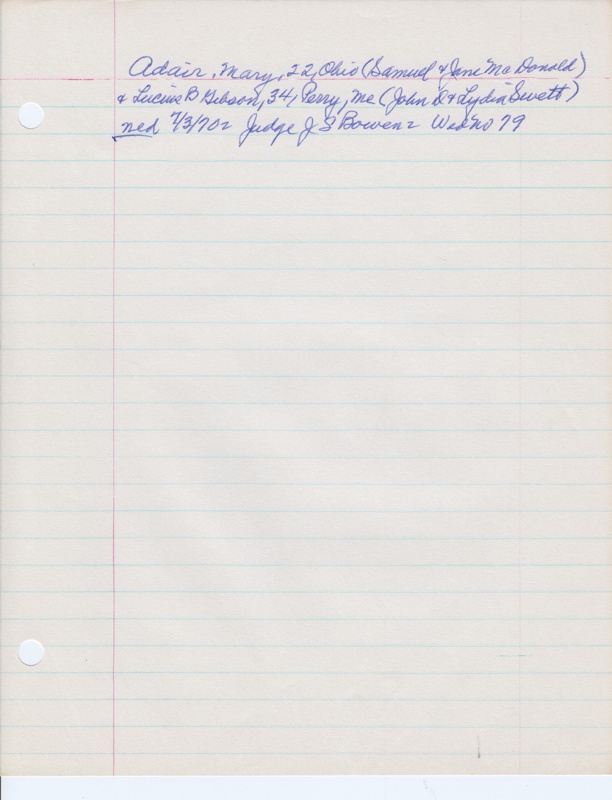 Adair, Mary, 22, Ohio (Samuel & Jane MacDonald)
& Lucius B Gibson, 34, Perry, Me (John & Lydia Swett)
7/3/70 = Judge J S Bowen = Wed No 79